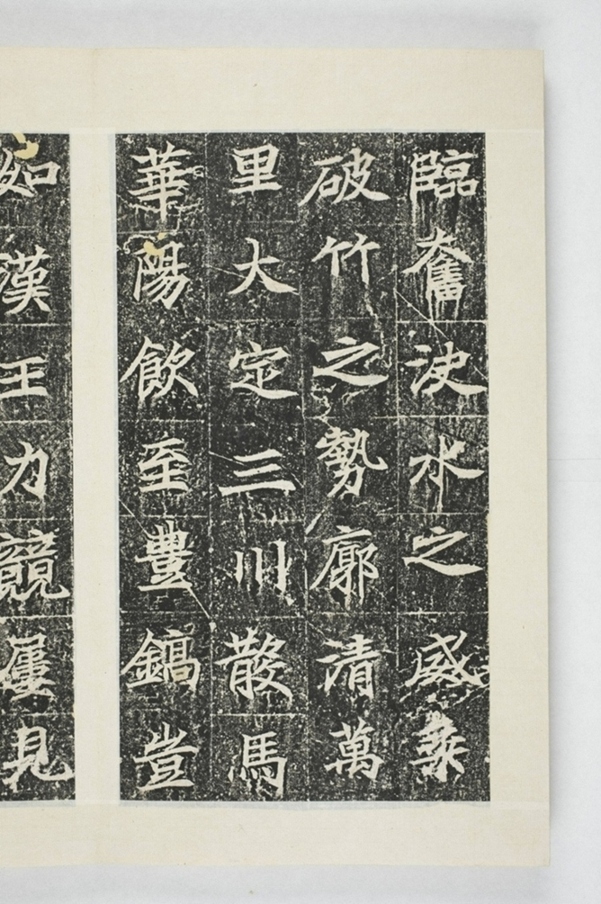 臨奮決水之威乘
破竹之勢廓清萬
里大定三川散馬
華陽飲至豐鎬豈
如漢王力競屢見